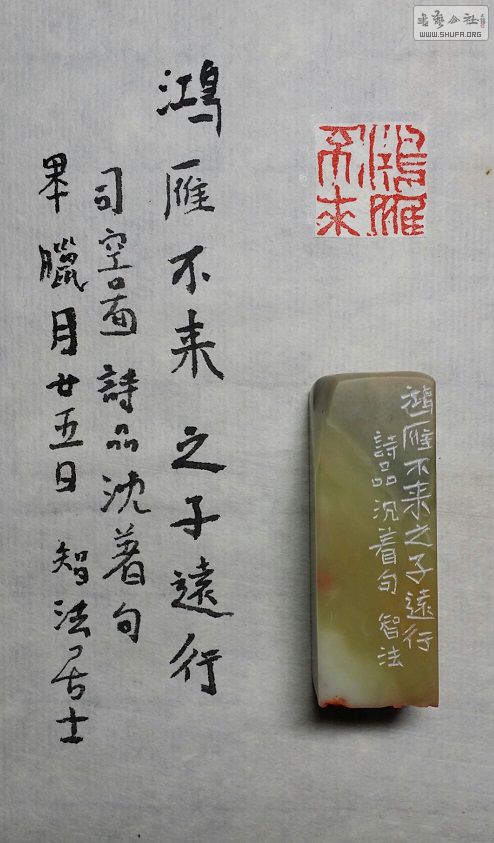 鴻雁不来之子遠行
司空啚詩品沈著句
臘月廿五日 智法居士
鴻雁不来
鴻雁不来之子遠行
詩品沉着句 智法
書藝公社
WWW.SHUFA.ORG